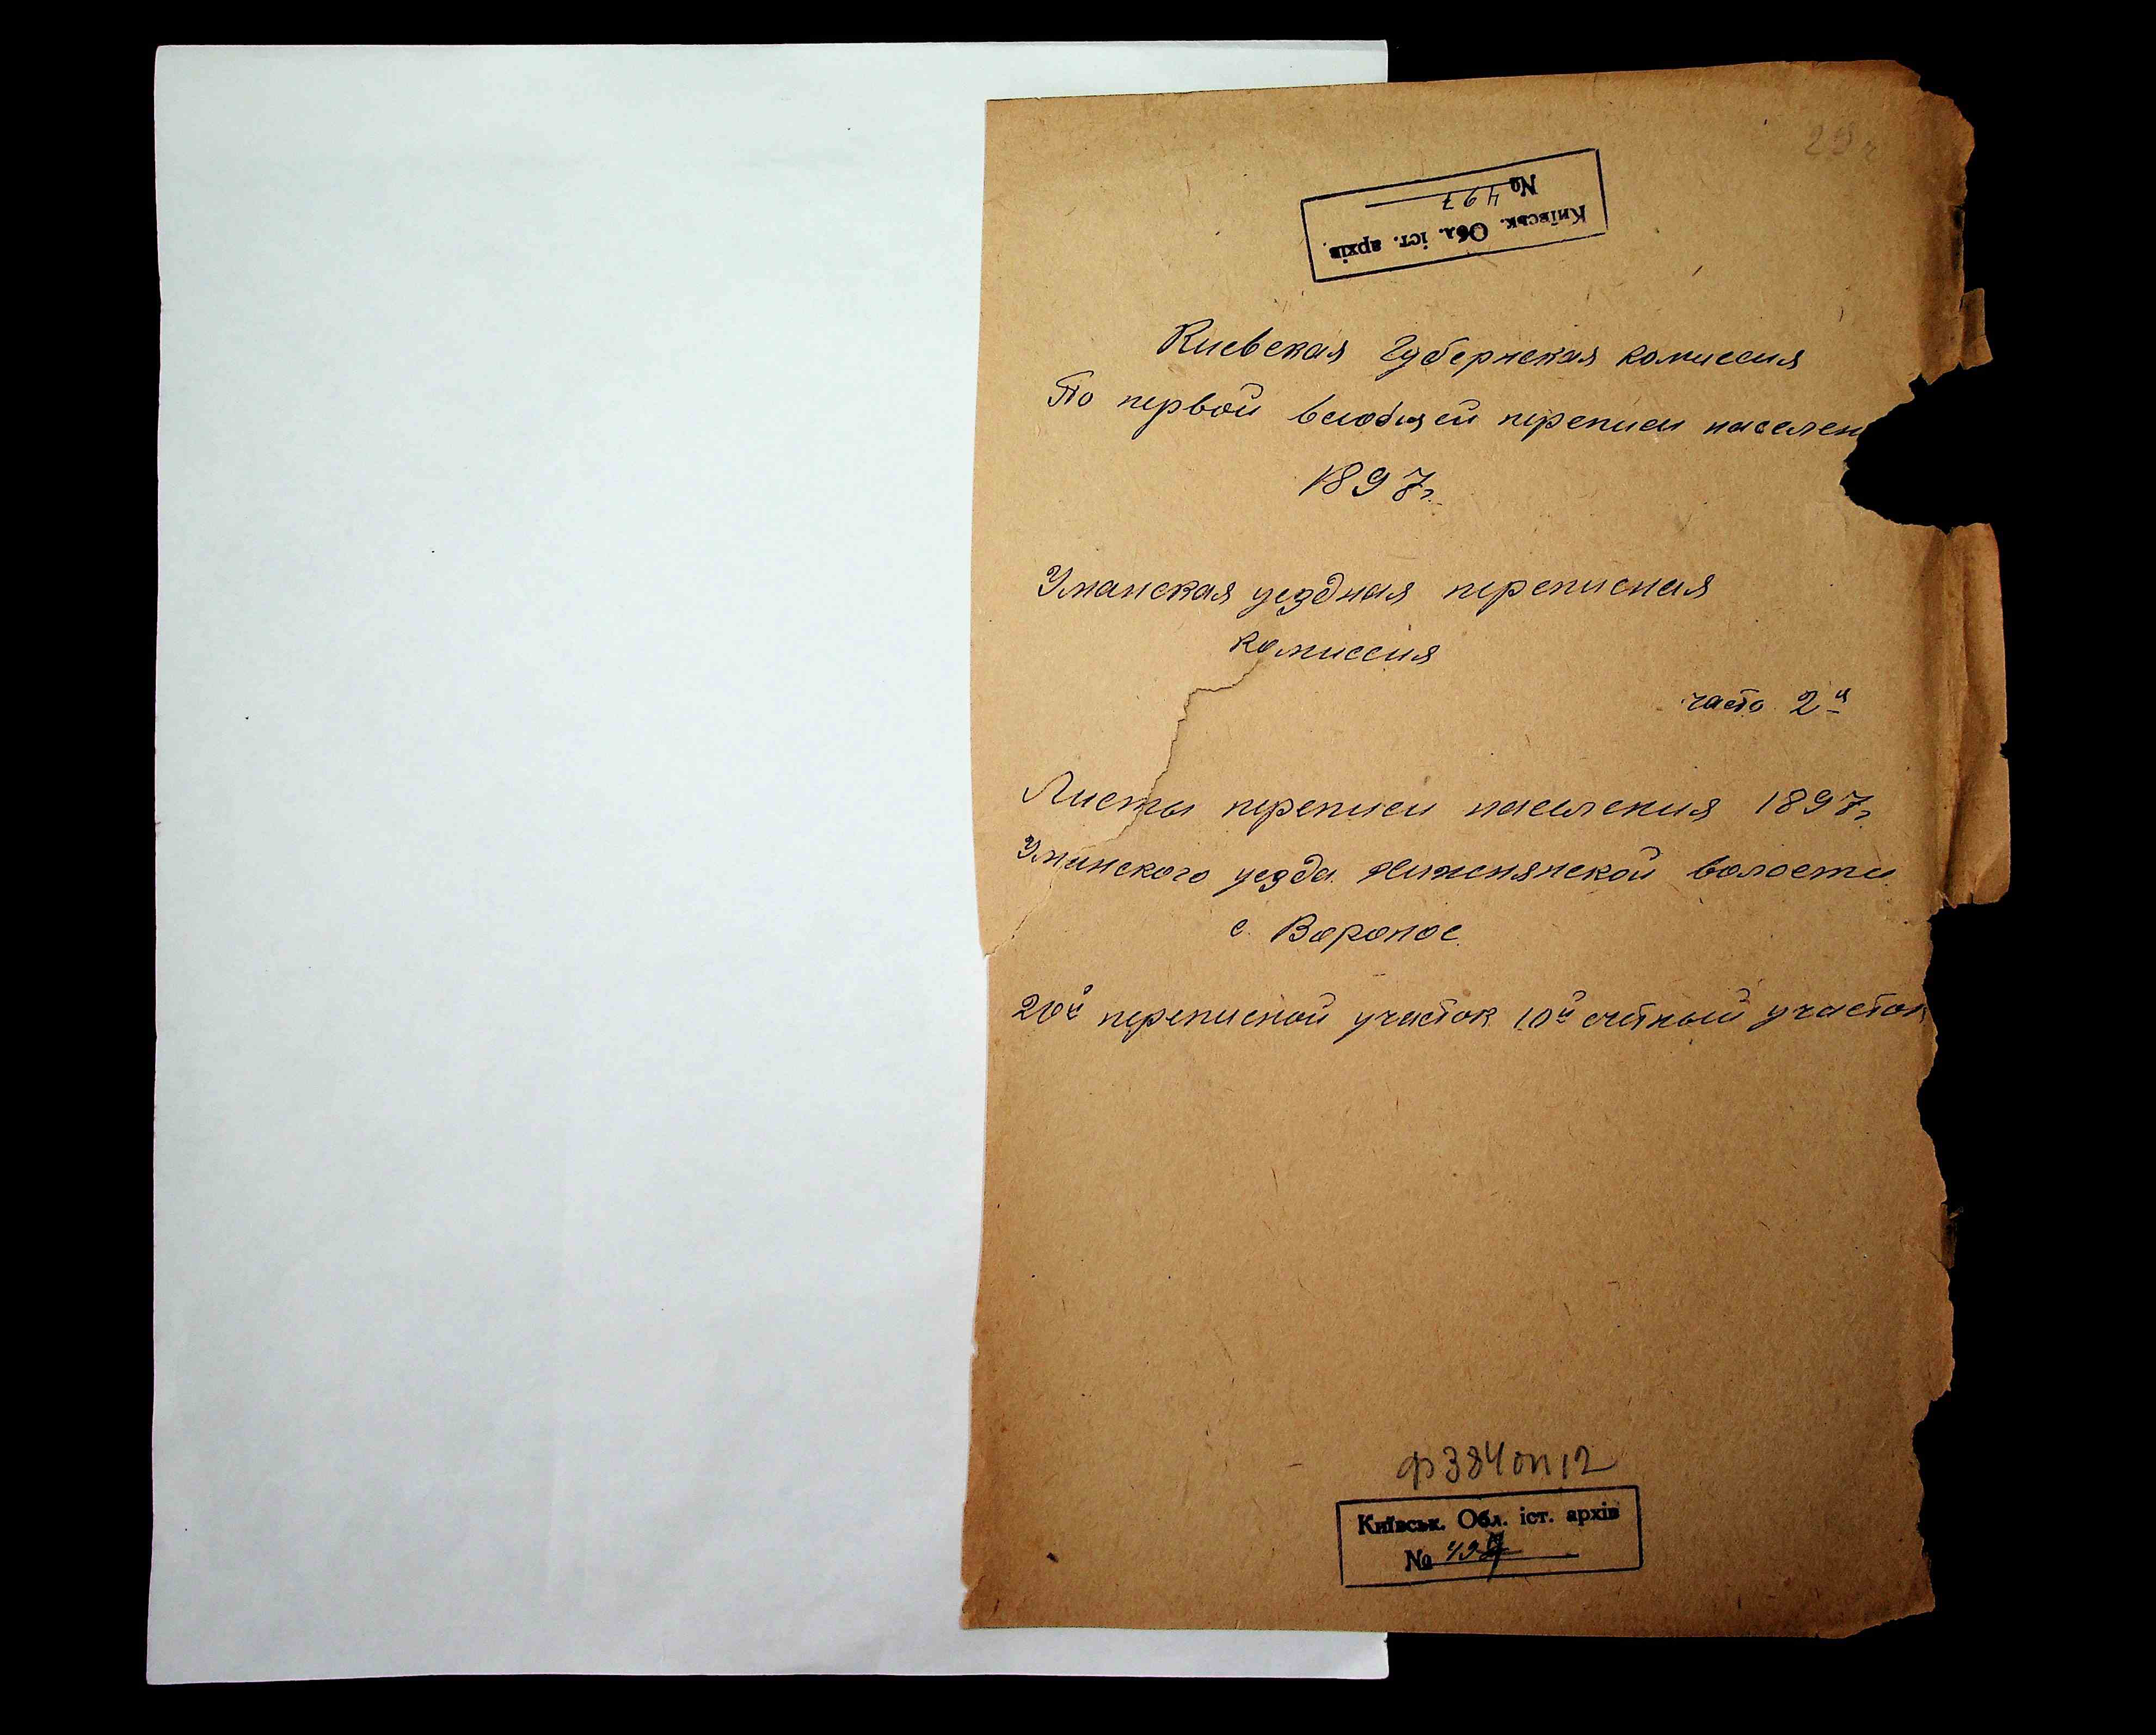 Київськ. Обл. іст. архів.
№ 497
Киевская Губернская комиссия
По первой всеобщей переписи населен
1897г.
Уманская уездная переписная
комиссия
часть 2я
Листы переписи населения 1897г.
Уманского уезда волости
с. Вороное
20й переписной участок 10й счетный участок
ф 384 оп 12
Київськ. Обл. іст. архів
№ 497